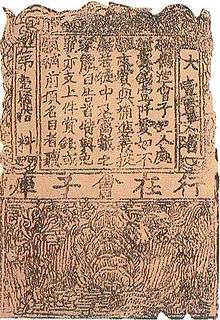 大壹貫文省
敕偽造會子犯人處
斬賞錢壹阡貫如不
願支賞與補進義校
尉若徒中及窩藏之
家能自告首特與免
罪亦支上件賞錢或
願補前項名目者聽
行在會子庫